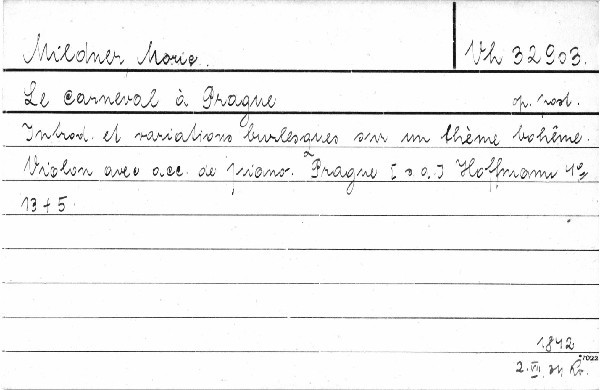 Mildner, Moric. Vh 32903.
Le Carneval à Prague op. post.
Introd. et variations burlesques sur un thème bohême.
Violon avec acc. de piano. Prague [s. a.] Hoffmann 4°
13+5.
1.842
7022
2. VII.